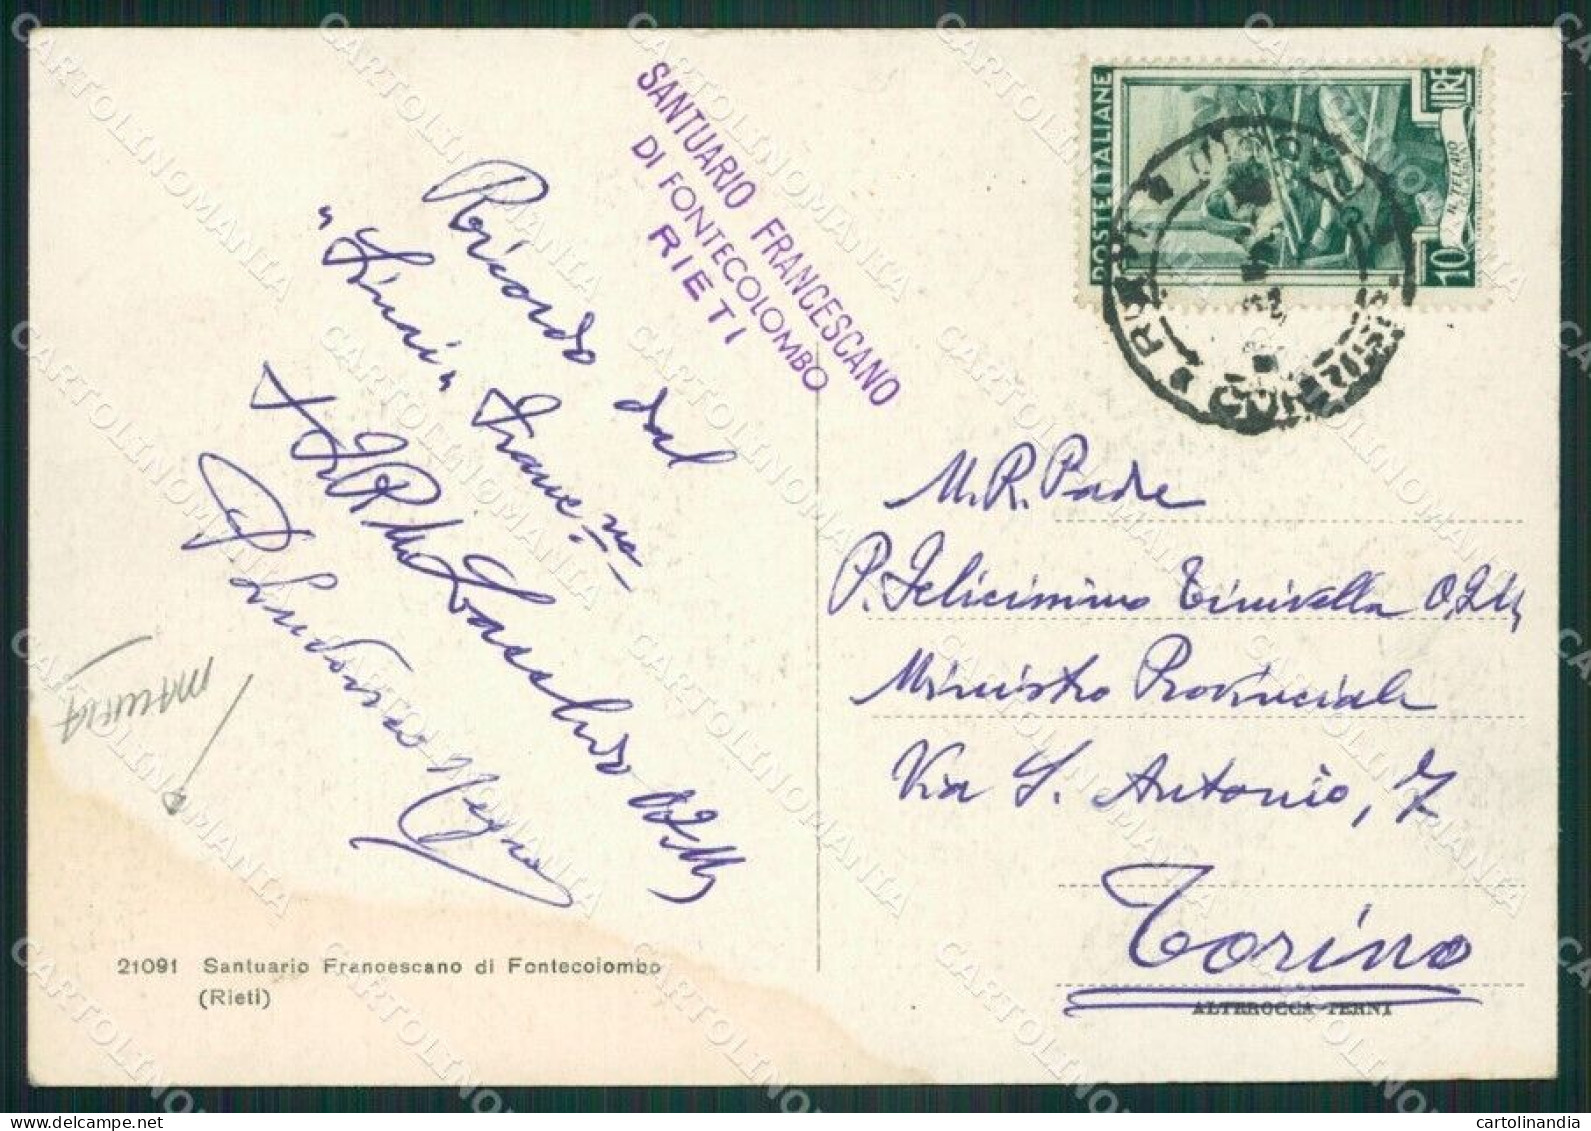 SANTUARIO FRANCESCANO
DI FONTECOLOMBO
RIETI
POSTE ITALIANE
LIRE
10
Ricordo dal
"Sinai" Franc.no
Ludovico
M. R. Padre
P. Felicissimo Tinivella O.F.M.
Ministro Provinciale
Via S. Antonio, 7
Torino
MACCHIA
21091 Santuario Francescano di Fontecolombo
(Rieti)
ALTEROCCA-TERNI
CARTOLINOMANIA
cartolinandia